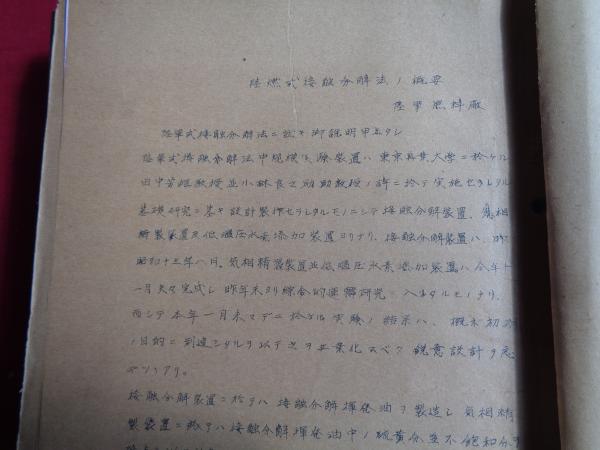 陸燃式接触分解法ノ概要
陸軍燃料廠
陸軍式接触分解法ニ就キ御説明申上タシ
陸軍式接触分解法中規模
装置ハ東京工業大学ニ於ケル
田中芳雄教授並小林良之助助教授ノ許ニ於テ実施セラレタル
基礎研究ニ基キ設計製作セラレタルモノニシテ接触分解装置、気相
精製装置及低温圧水素添加装置ヨリナリ、接触分解装置ハ、昨
昭和十三年八月、気相精製装置並低温圧水素添加装置ハ今年十
一月夫々完成シ昨年末ヨリ綜合的運転研究ニ入リタルモノナリ、
而シテ本年一月末マデニ於ケル実験ノ結果ハ、概ネ初
ノ目的ニ到達シタルヲ以テ之ヲ工業化スベク鋭意設計ヲ
ツツアリ。
接触分解装置ニ於テハ接触分解揮発油ヲ製造シ気相精
製装置ニ於テハ接触分解揮発油中ノ硫黄分並不飽和分